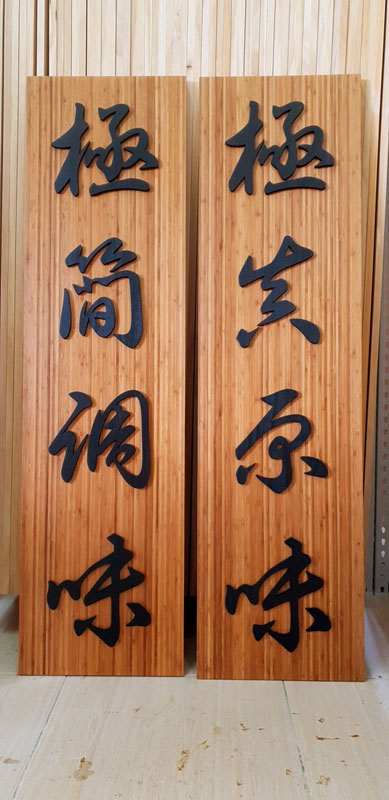 極真原味
極簡調味